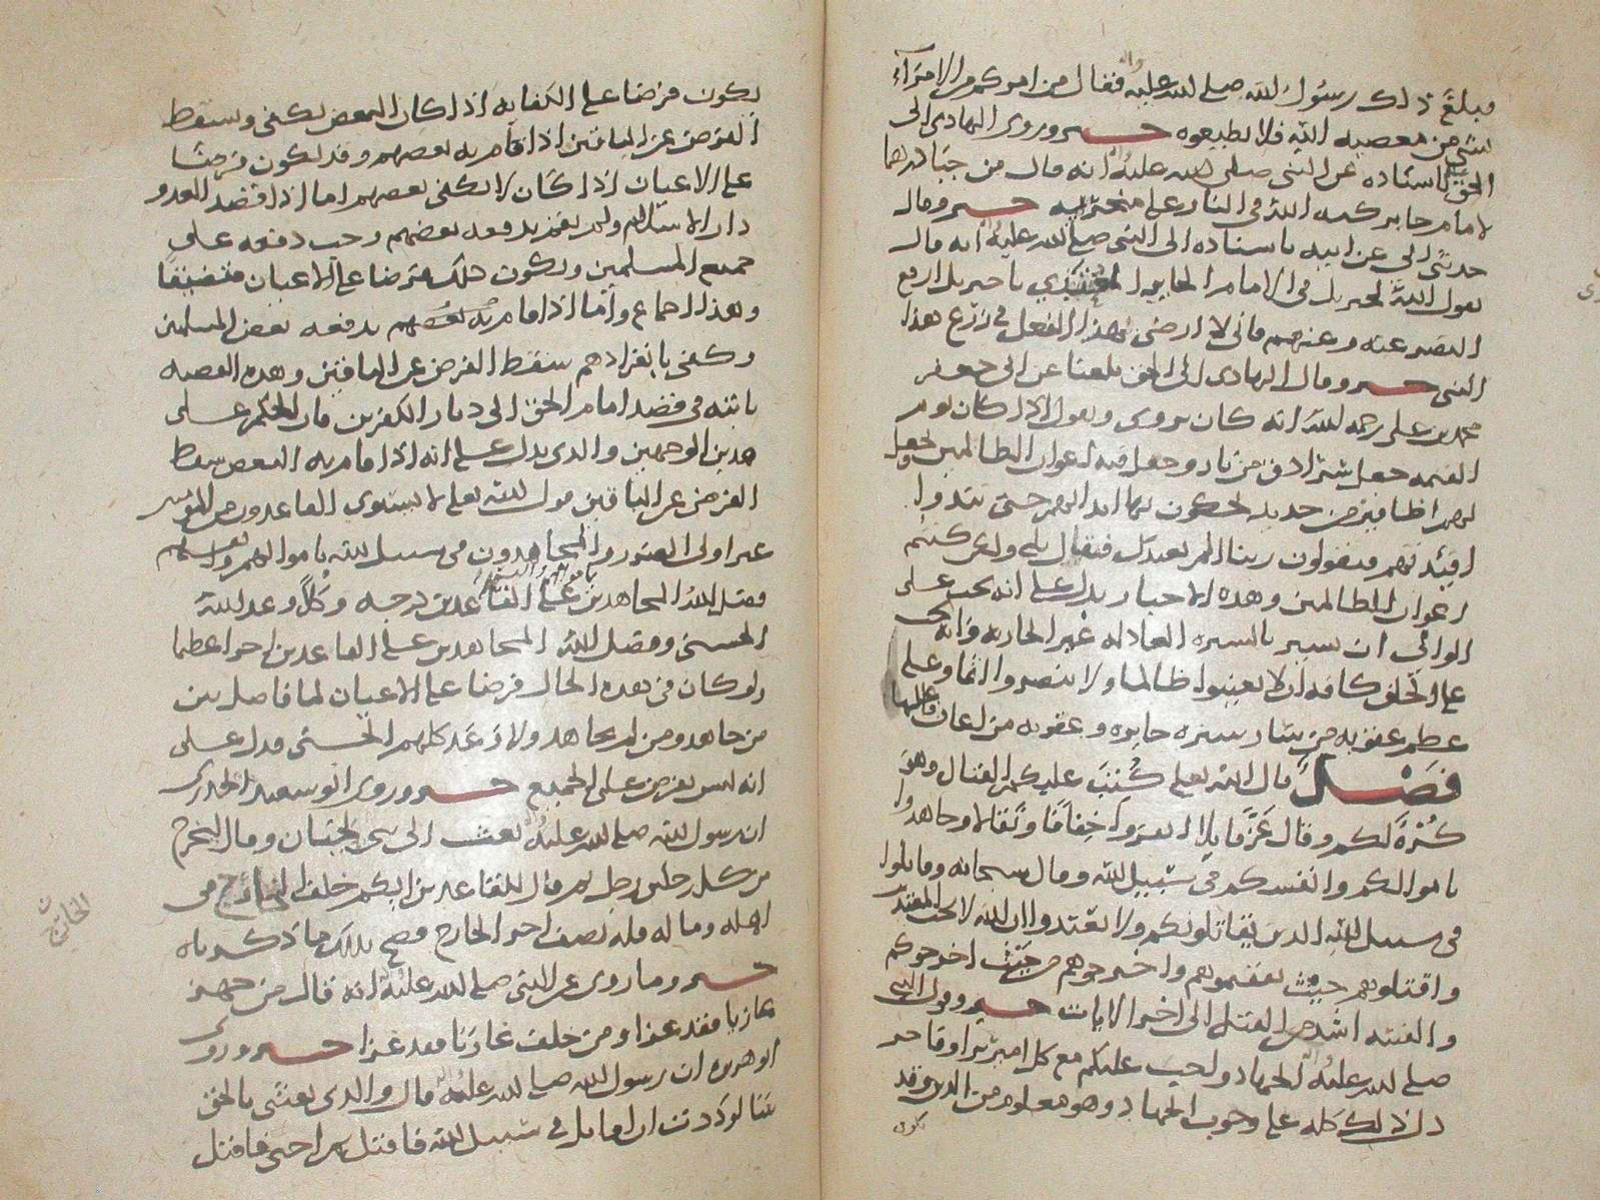 فبلغ ذلك رسول الله صلى الله عليه وآله فقال من امركم من الامراء
بشي من معصيه الله فلا تطيعوه خبر وروى الهادي الى
الحق باسناده عن النبي صلى الله عليه وآله انه قال من جبا درهما
لامام جاير كبه الله في النار على منخريه خبر وقال
حدثني ابي عن ابيه باسناده الى النبي صلى الله عليه وآله انه قال
يقول الله لجبريل في الامام الجاير يا جبريل ارفع
النصر عنه وعنهم فاني لا ارضى بهذا الفعل في زرع هذا
النبي خبر وقال الهادي الى الحق بلغنا عن ابي جعفر
محمد بن علي رحمه الله انه كان يروي ويقول اذا كان يوم
القيمه جعل سرادق من نار وجعل فيه اعوان الظالمين وجعل
لهم اظافير من حديد يحكون بها ابدانهم حتى تبدوا
افئدتهم فيقولون ربنا الم نعبدك فيقال بلى ولكن كنتم
اعوان للظالمين وهذه الاخبار يدل على انه يجب على
الوالي ان يسير بالسيره العادله غير الجايره وانه يجب
على الخلق كافه ان لا يعينوا ظالما ولا ينصروا اثما وعلى
عظم عقوبه من سار سيره جايره وعقوبه من اعان عليها
فصل قال الله تعالى كتب عليكم القتال وهو
كره لكم وقال عز قايلا انفروا خفافا وثقالا وجاهدوا
باموالكم وانفسكم في سبيل الله وقال سبحانه وقاتلوا
في سبيل الله الذين يقاتلونكم ولا تعتدوا ان الله لا يحب المعتدين
واقتلوهم حيث ثقفتموهم واخرجوهم من حيث اخرجوكم
والفتنه اشد من القتل الى اخر الايات خبر وقول النبي
صلى الله عليه وآله الجهاد واجب عليكم مع كل امير برا او فاجر
دل ذلك كله على وجوب الجهاد وهو معلوم من الدين وقد
يكون
يكون فرضا على الكفايه اذا كان البعض يكفي وسقط
الفرض عن الباقين اذا قام به بعضهم وقد يكون فرضا
على الاعيان اذا كان لا يكفي بعضهم اما اذا قصد العدو
دار الاسلام ولم يقم بدفعه بعضهم وجب دفعه على
جميع المسلمين ويكون ذلك فرضا على الاعيان متضيقا
وهذا اجماع واما اذا قام به بعضهم بدفعه بعض المسلمين
وكفى بانفرادهم سقط الفرض عن الباقين وهذه القضيه
ثابته في قصد امام الحق الى ديار الكفرين فان الحكم على
هذين الوجهين والذي يدل على انه اذا قام به البعض سقط
الفرض عن الباقين قول الله تعالى لا يستوي القاعدون من المؤمنين
غير اولى الضرر والمجاهدون في سبيل الله باموالهم وانفسهم
فضل الله المجاهدين باموالهم وانفسهم على القاعدين درجه وكلا وعد الله
الحسنى وفضل الله المجاهدين على القاعدين اجرا عظيما
ولو كان في هذه الحال فرضا على الاعيان لما فاضل بين
من جاهد ومن لم يجاهد ولا وعد كلهم الحسنى فدل على
انه ليس بفرض على الجميع خبر وروى ابو سعيد الخدري
ان رسول الله صلى الله عليه وآله بعث الى بني لحيان وقال ليخرج
من كل رجلين رجل ثم قال للقاعدين ايكم خلف الخارج في
اهله وماله فله نصف اجر الخارج فصح بذلك ما ذكرناه
خبر وما روى عن النبي صلى الله عليه وآله انه قال من جهز
غازيا فقد غزا ومن خلف غازيا فقد غزا خبر وروى
ابو هريره ان رسول الله صلى الله عليه وآله قال والذي بعثني بالحق
نبيا لوددت ان اقاتل في سبيل الله فاقتل ثم احيى فاقتل